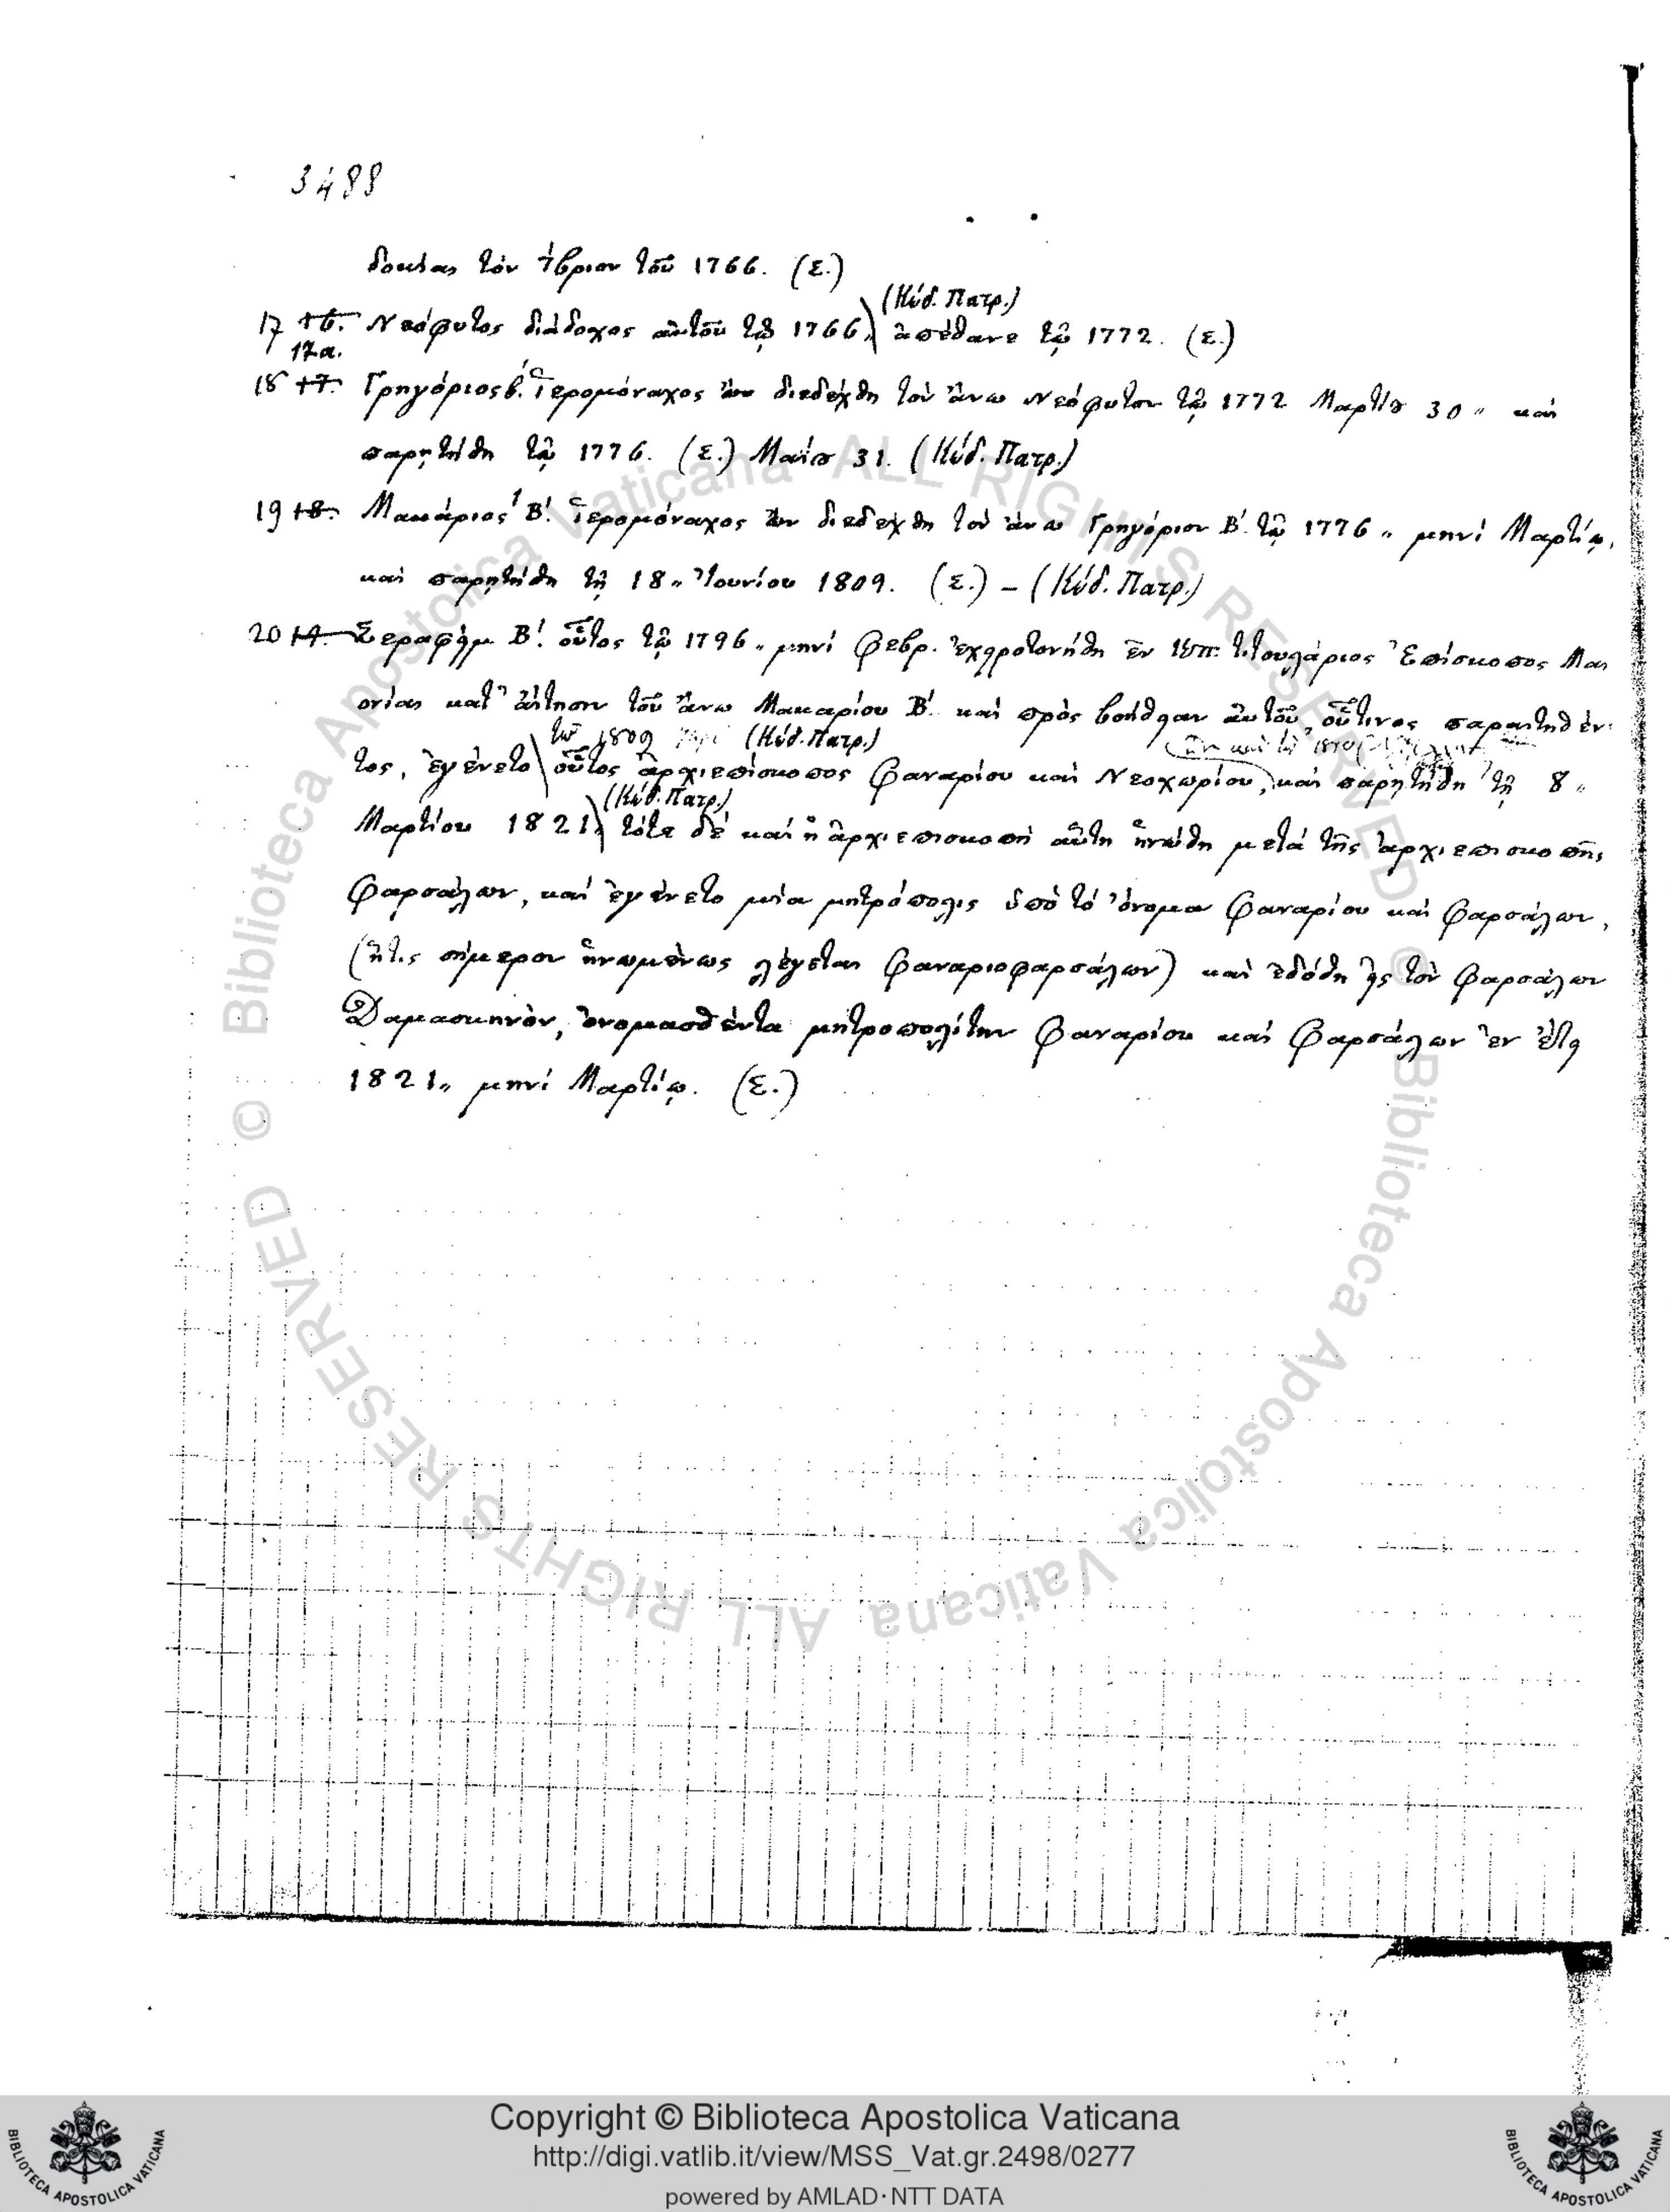 3488
δουκας τὸν ἴβριον τοῦ 1766. (Σ.)
(Κώδ. Πατρ.)
17 16. Νεόφυτος διάδοχος αὐτοῦ τῷ 1766, ἀπέθανε τῷ 1772. (Σ.)
17α.
18 17. Γρηγόριος β΄. ἱερομόναχος ὢν διεδέχθη τὸν ἄνω Νεόφυτον τῷ 1772 Μαρτίου 30 „ καὶ
παρῃτήθη τῷ 1776. (Σ.) Μαΐου 31. (Κώδ. Πατρ.)
19 18. Μακάριος Β΄. ἱερομόναχος ὢν διεδέχθη τὸν ἄνω Γρηγόριον Β΄. τῷ 1776 „ μηνὶ Μαρτίῳ,
καὶ παρῃτήθη τῇ 18 „ Ἰουνίου 1809. (Σ.) – (Κώδ. Πατρ.)
20 19. Σεραφεὶμ Β΄. οὗτος τῷ 1796 „ μηνὶ Φεβρ. ἐχειροτονήθη ἐν Κωπ: τιτουλάριος Ἐπίσκοπος Μαι
ονίας κατ' αἴτησιν τοῦ ἄνω Μακαρίου Β΄. καὶ πρὸς βοήθειαν αὐτοῦ, οὗτινος παραιτηθέν-
τῷ 1809 (Κώδ. Πατρ.)
τος, ἐγένετο οὗτος ἀρχιεπίσκοπος Φαναρίου καὶ Νεοχωρίου, καὶ παρῃτήθη τῇ 8 „
(Κώδ. Πατρ.)
Μαρτίου 1821, τότε δὲ καὶ ἡ ἀρχιεπισκοπὴ αὕτη ἡνώθη μετὰ τῆς ἀρχιεπισκοπῆς
Φαρσάλων, καὶ ἐγένετο μία μητρόπολις ὑπὸ τὸ ὄνομα Φαναρίου καὶ Φαρσάλων,
(ἥτις σήμερον ἡνωμένως λέγεται Φαναριοφαρσάλων) καὶ ἐδόθη εἰς τὸν Φαρσάλων
Δαμασκηνὸν, ὀνομασθέντα μητροπολίτην Φαναρίου καὶ Φαρσάλων ἐν ἔτει
1821 „ μηνὶ Μαρτίῳ. (Σ.)
© Biblioteca Apostolica Vaticana ALL RIGHTS RESERVED
© Biblioteca Apostolica Vaticana ALL RIGHTS RESERVED
Copyright © Biblioteca Apostolica Vaticana
http://digi.vatlib.it/view/MSS_Vat.gr.2498/0277
powered by AMLAD·NTT DATA
BIBLIOTECA APOSTOLICA VATICANA
BIBLIOTECA APOSTOLICA VATICANA